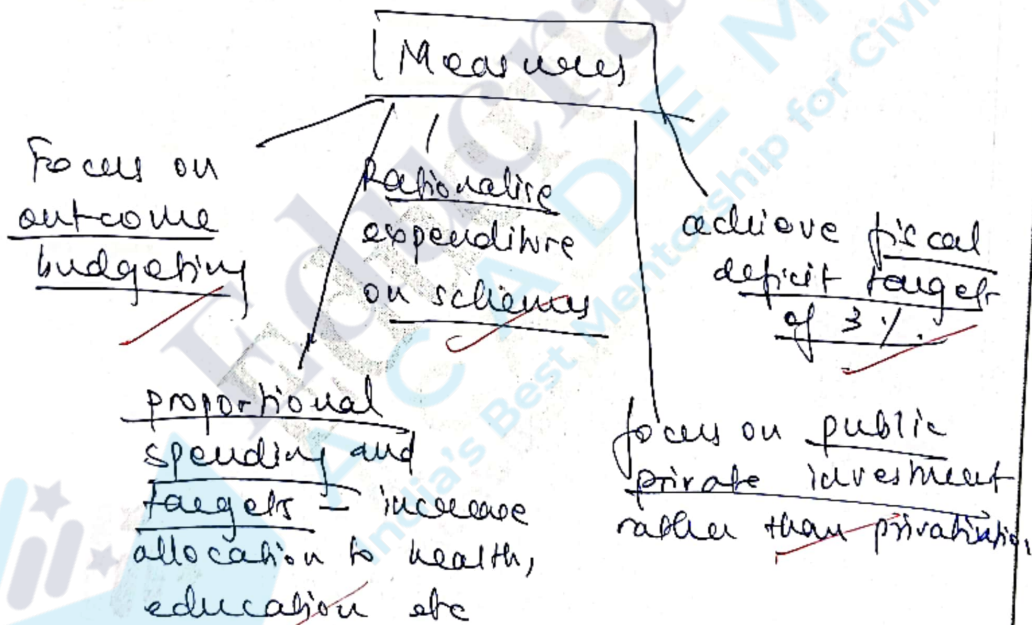 Measures
Focus on
outcome
budgeting
Rationalise
expenditure
on schemes
achieve fiscal
deficit targets
of 3%.
proportional
spending and
targets - increase
allocation to health,
education etc
focus on public
private investment
rather than privatisation
India's Best Mentorship for Civil